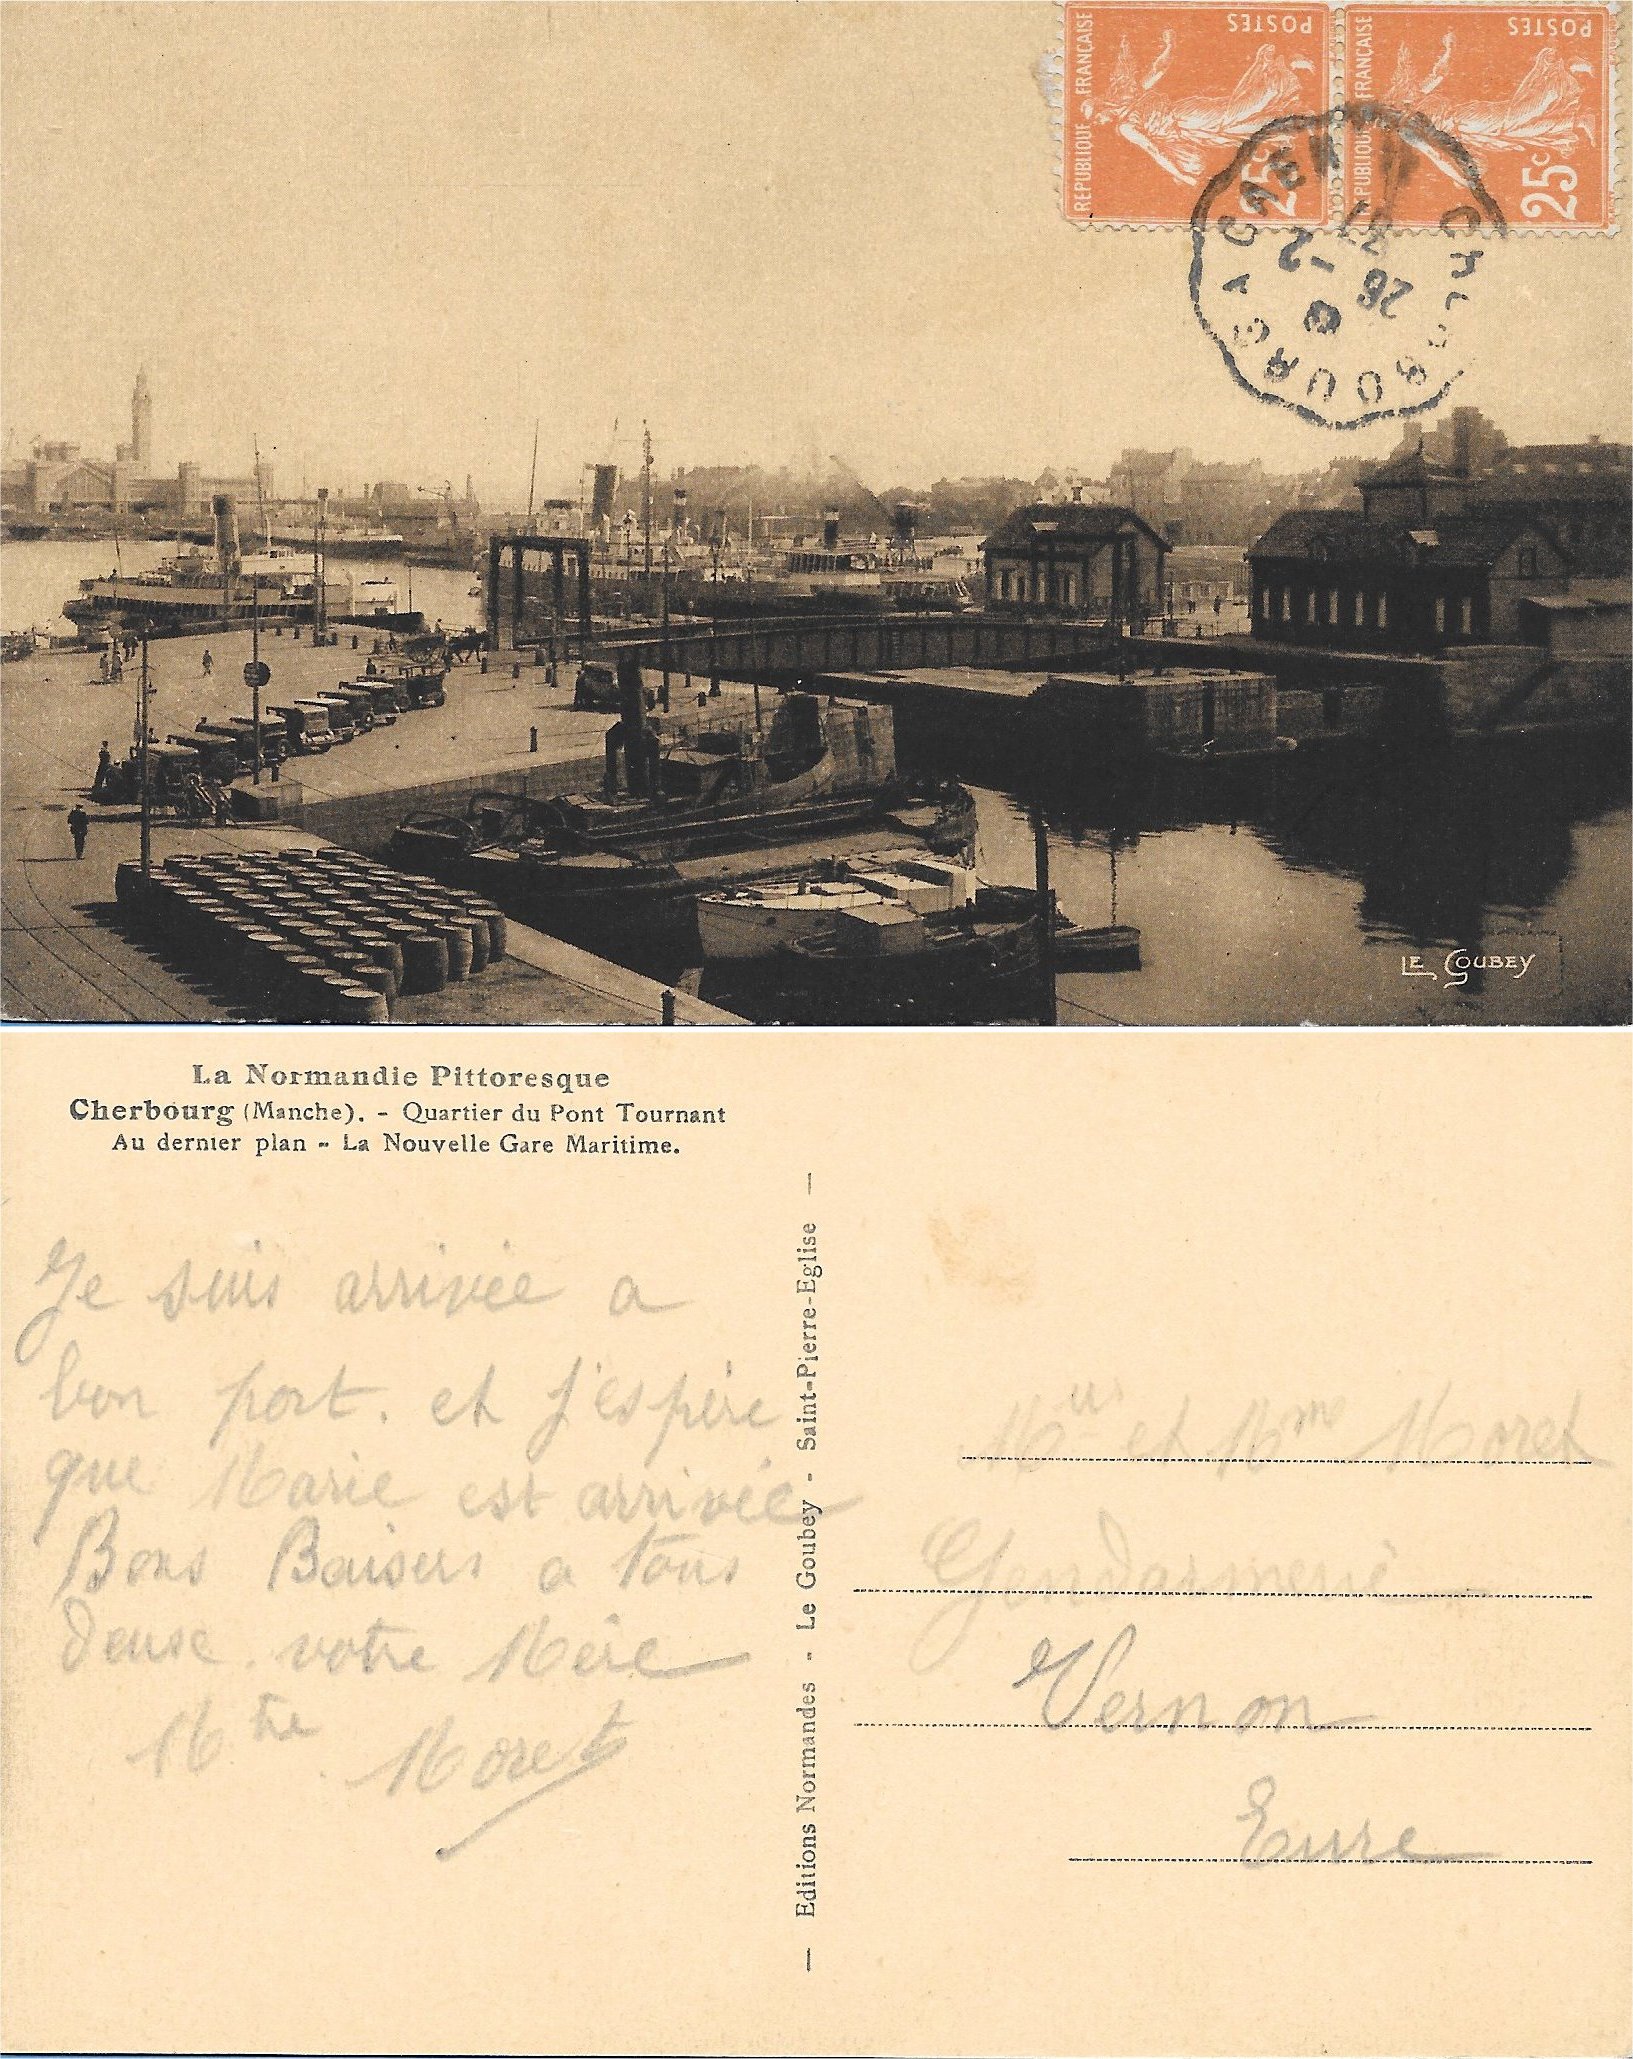 REPUBLIQUE FRANÇAISE
POSTES
25c
REPUBLIQUE FRANÇAISE
POSTES
25c
CHERBOURG A CAEN
26-2
37
LE GOUBEY
La Normandie Pittoresque
Cherbourg (Manche). - Quartier du Pont Tournant
Au dernier plan - La Nouvelle Gare Maritime.
Je suis arrivée a
bon port. et J'espère
que Marie est arrivée
Bons Baisers a tous
deuse. votre Mère
Moret
— Editions Normandes - Le Goubey - Saint-Pierre-Eglise —
et Mme Moret
Gendarmerie
Vernon
Eure